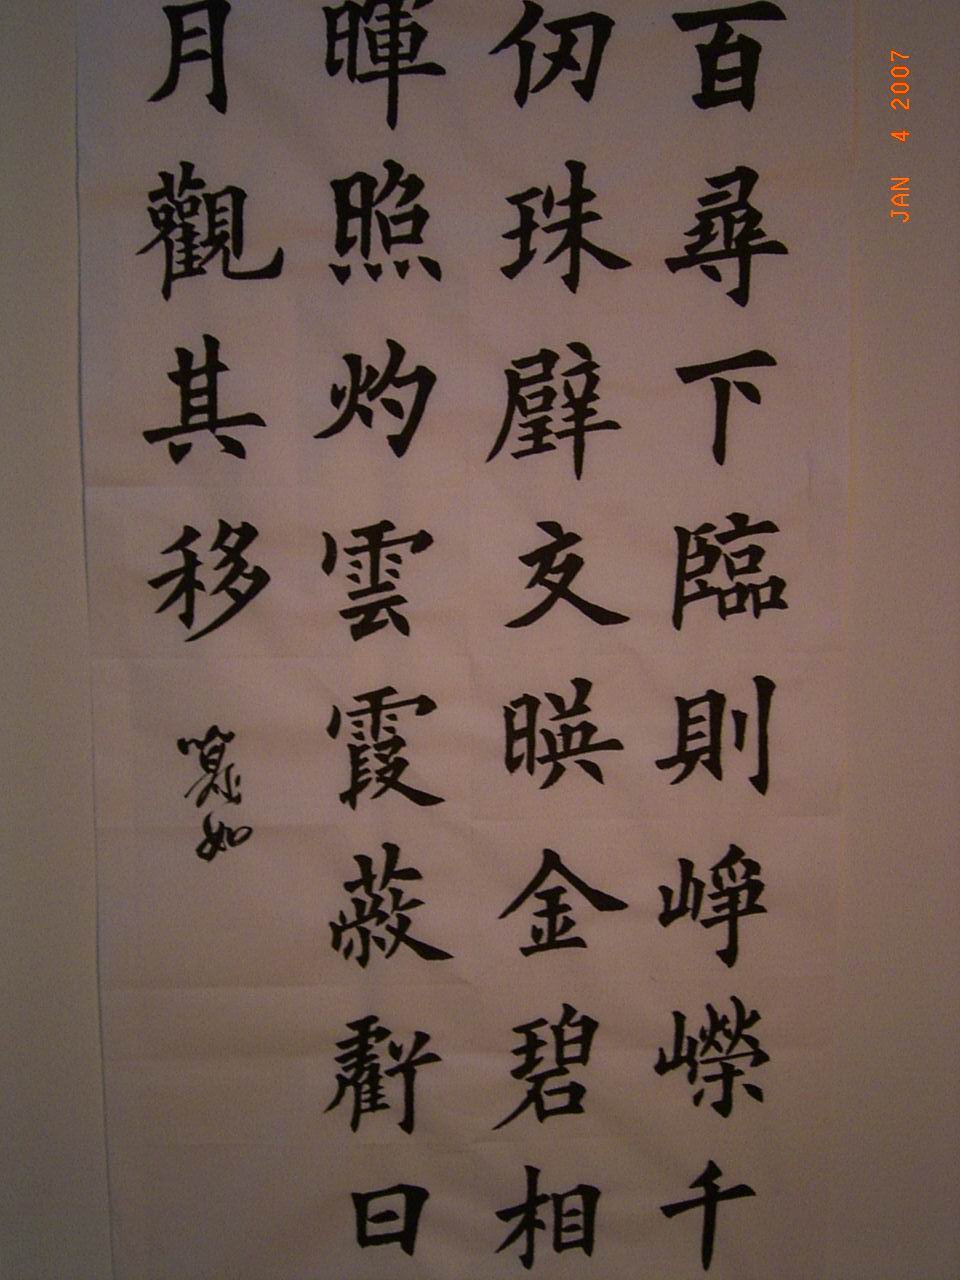 百尋下臨則崢嶸千
仞珠壁交暎金碧相
暉照灼雲霞蔽虧日
月觀其移
JAN 4 2007